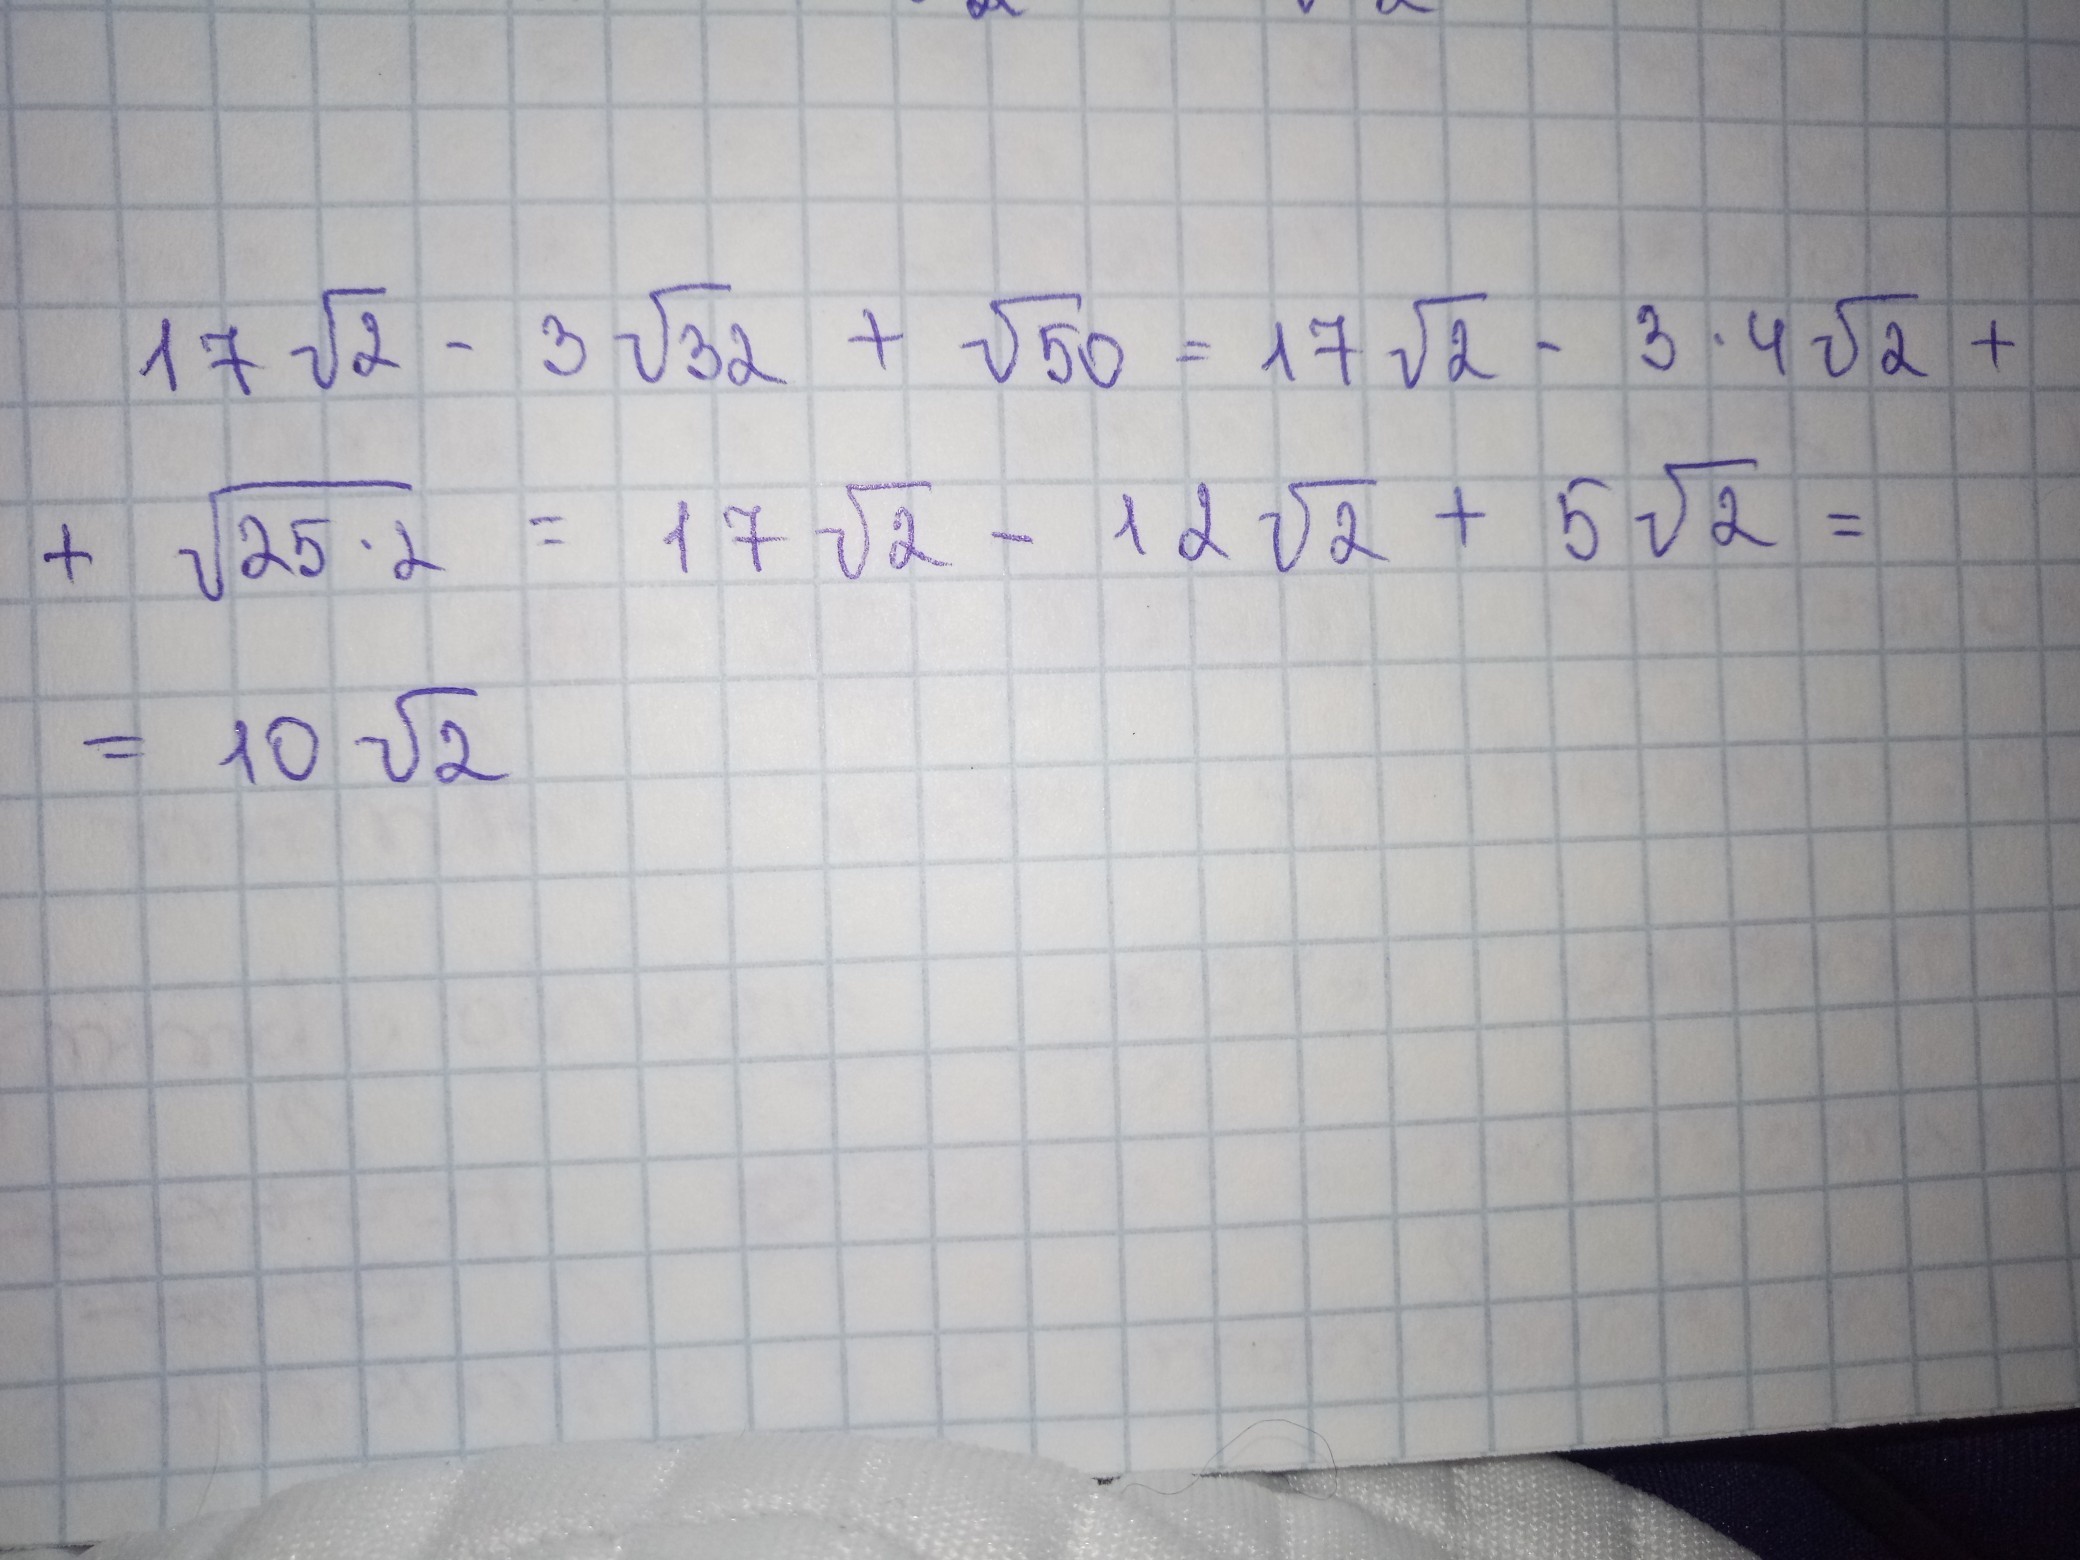 17√2 - 3√32 + √50 = 17√2 - 3·4√2 +
+ √25·2 = 17√2 - 12√2 + 5√2 =
= 10√2